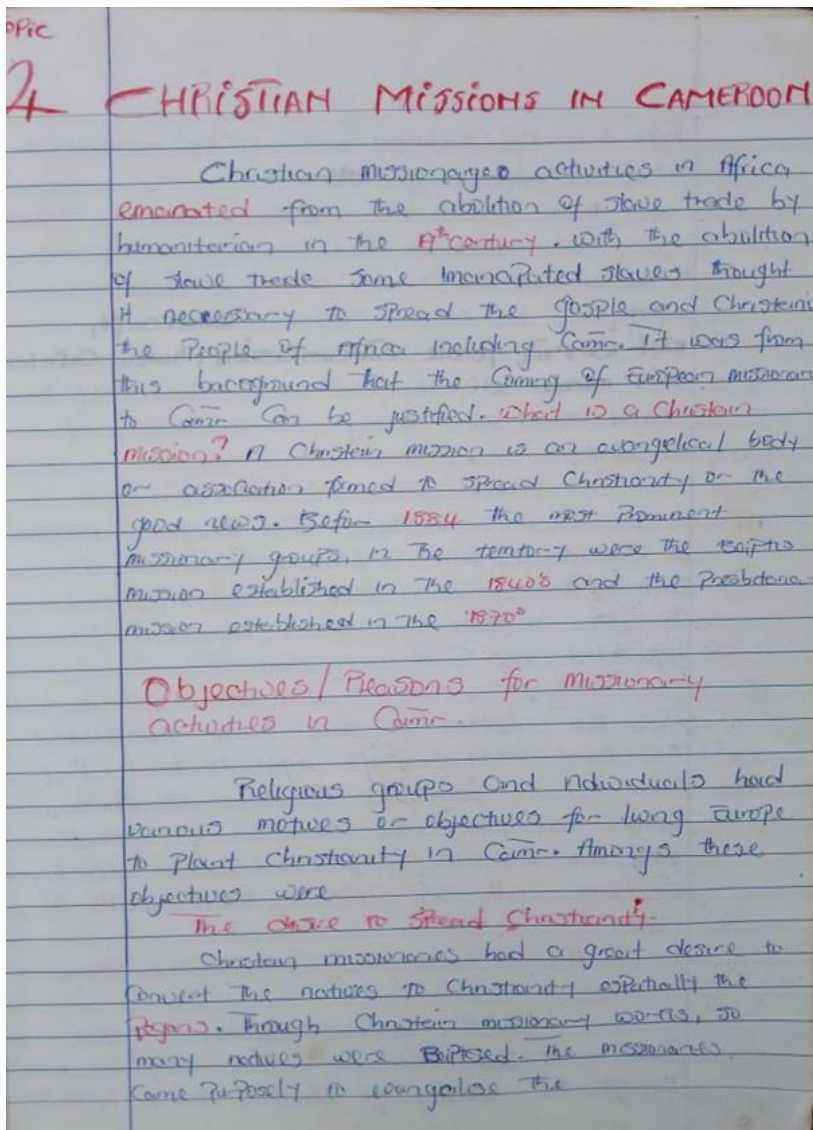 opic
2 CHRISTIAN MISSIONS IN CAMEROON
Christian missionaged activities in Africa
emanated from the abolition of slave trade by
humaniterian in the 19th century. with the abolition
of slave trade some imancipated slaves thought
it necessary to spread the gosple and Christeini
the People of Africa including Camr. It was from
this background that the Coming of European missionari
to Camr Can be justified. what is a Christein
mission? A Christein mission is an evangelical body
or association formed to spread Christianity or the
good news. Before 1884 the most Prominent
missionary groups in the territory were the Baptis
mission established in the 1840s and the Presbteria
mission established in the 1870s
Objectives / Reasons for missionary
activities in Camr.
Religious groups and ndividuals had
various motives or objectives for living Europe
to Plant Christianity in Camr. Amongs these
objectives were
The desire to Spread Christianity.
Christein missionaries had a great desire to
Convert the natives to Christianity espetially the
Pegans. Through Christein missionary works, so
many natives were Baptised. The missionaries
Came Purposely to evangelise the